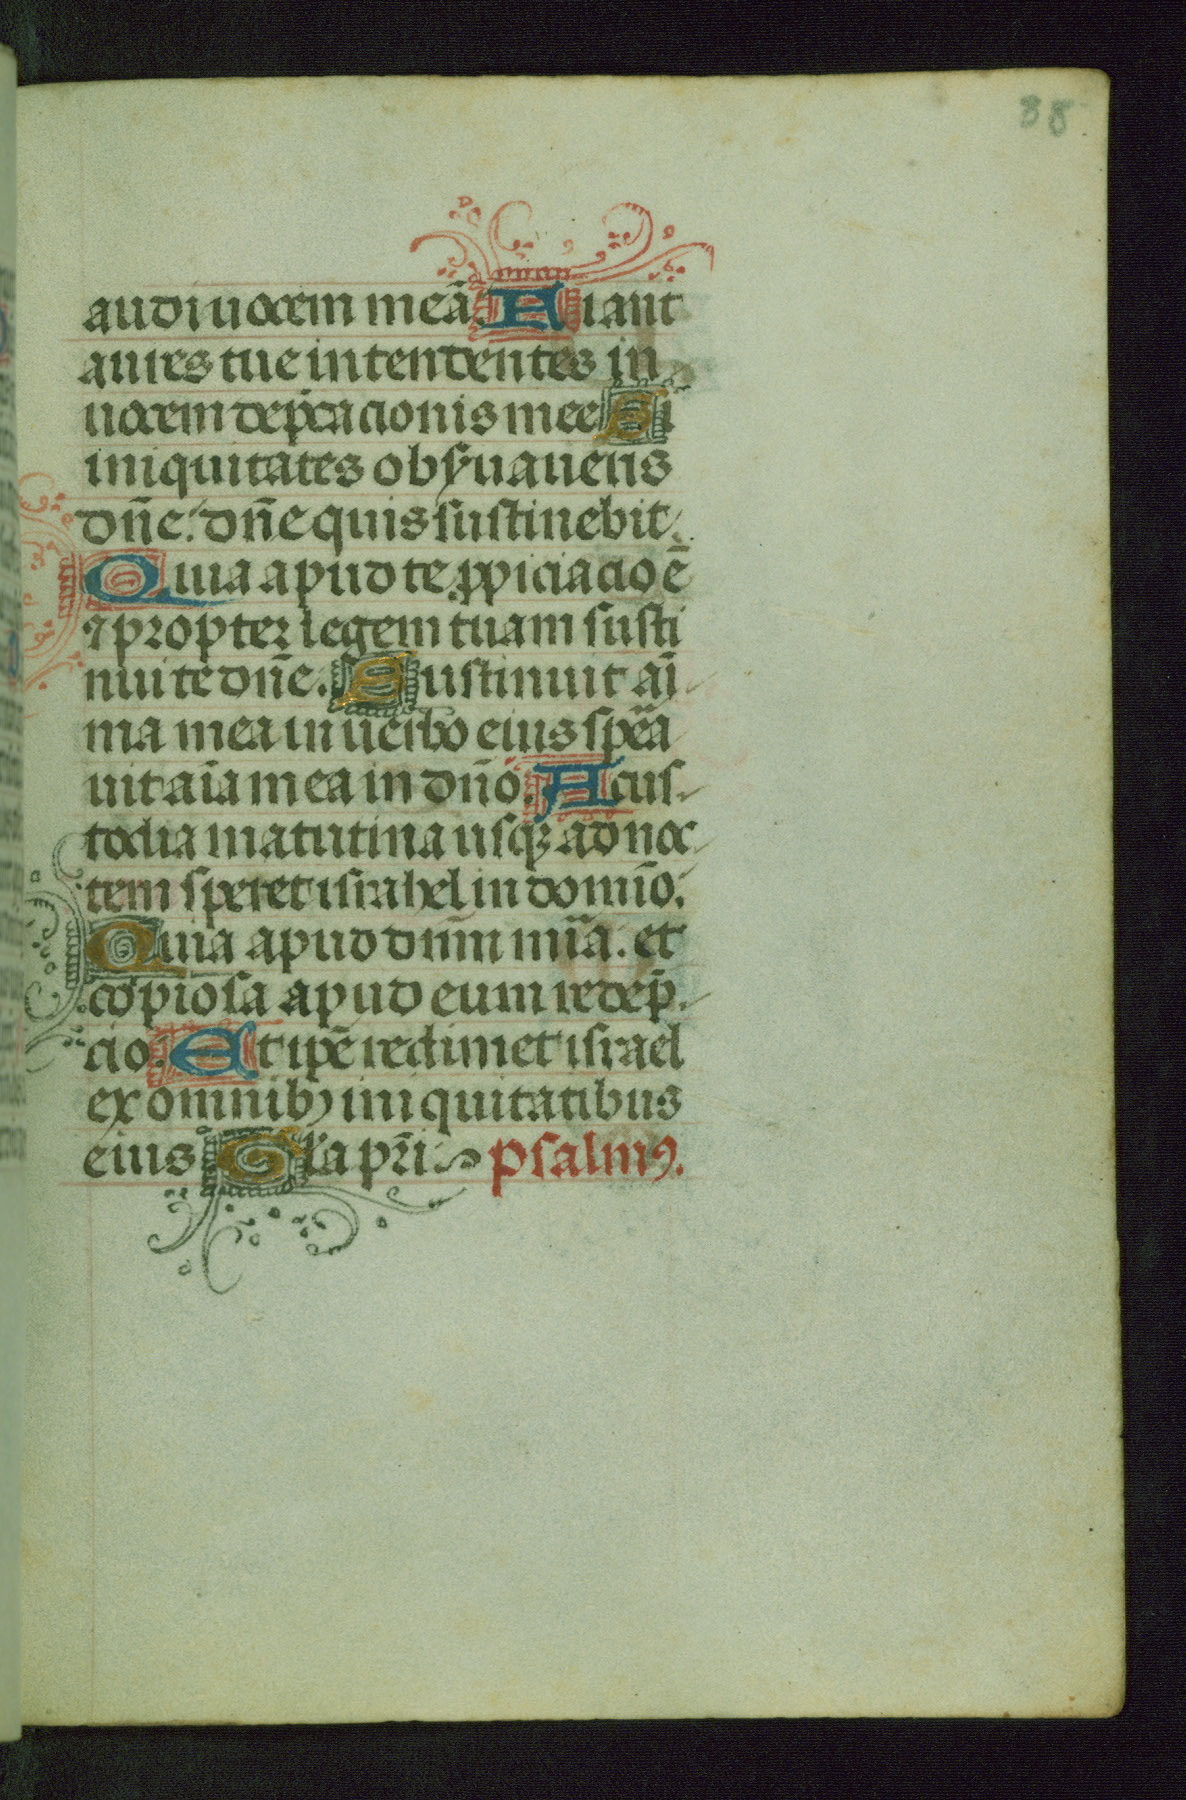 88
audi uocem meā. Fiant
aures tue intendentes in
uocem dep̄cacionis mee Si
iniquitates obẜuaueris
dn̄e: dn̄e quis sustinebit.
Quia apud te ꝓpiciacio ē
⁊ propter legem tuam susti
nui te dn̄e. Sustinuit ai̅
ma mea in uerbo eius spe̅a
uit ai̅a mea in dn̄o. A cus
todia matutina usqꝫ ad noc
tem speret israhel in domi̅o.
Quia apud dn̅m mi̅a. et
copiosa apud eum redep̄
cio. Et ip̄e redimet israel
ex omnibꝫ iniquitatibus
eius Gl̅a pr̅i. psalmꝰ.